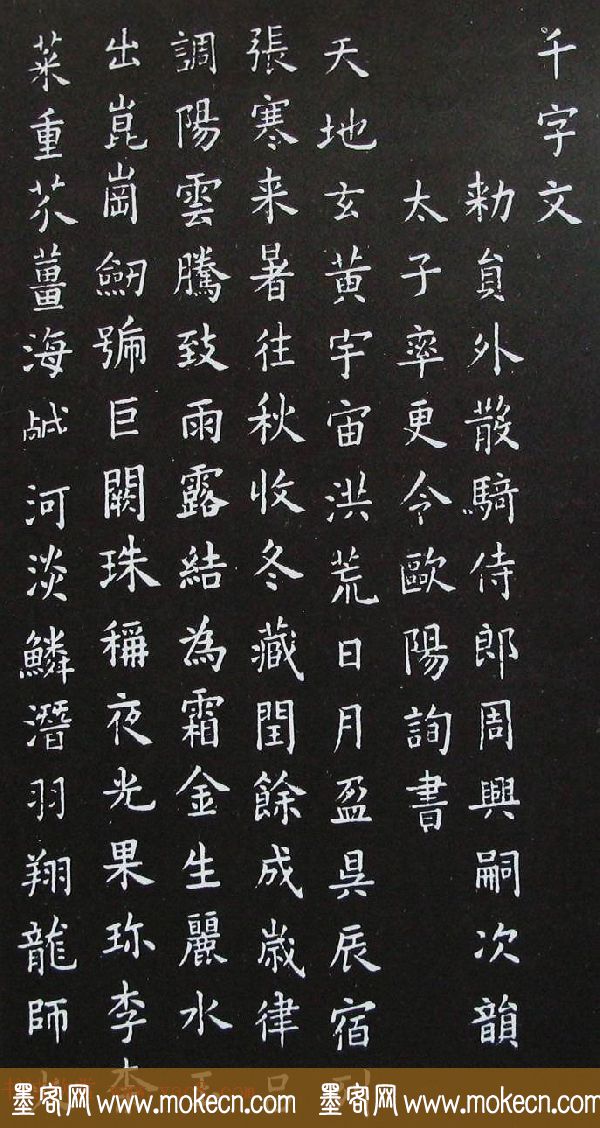 千字文
勅貟外散騎侍郎周興嗣次韻
太子率更令歐陽詢書
天地玄黄宇宙洪荒日月盈昃辰宿列
張寒来暑往秋收冬藏閏餘成歲律吕
調陽雲騰致雨露結為霜金生麗水玉
出崑崗劒號巨闕珠稱夜光果珎李柰
菜重芥薑海鹹河淡鱗潛羽翔龍師火
墨客网 www.mokecn.com 墨客网 www.mokecn.com